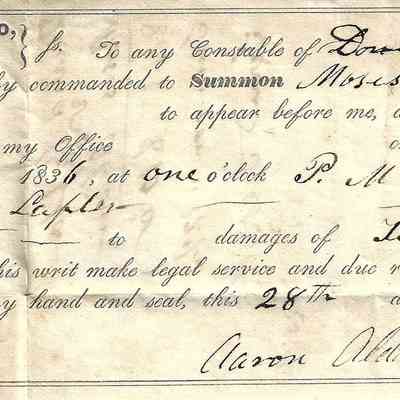 ss. To any Constable of
by commanded to Summon Moses
to appear before me, a
my Office
1836, at one o'clock P. M
to damages of
his writ make legal service and due r
y hand and seal, this 28th a
Aaron